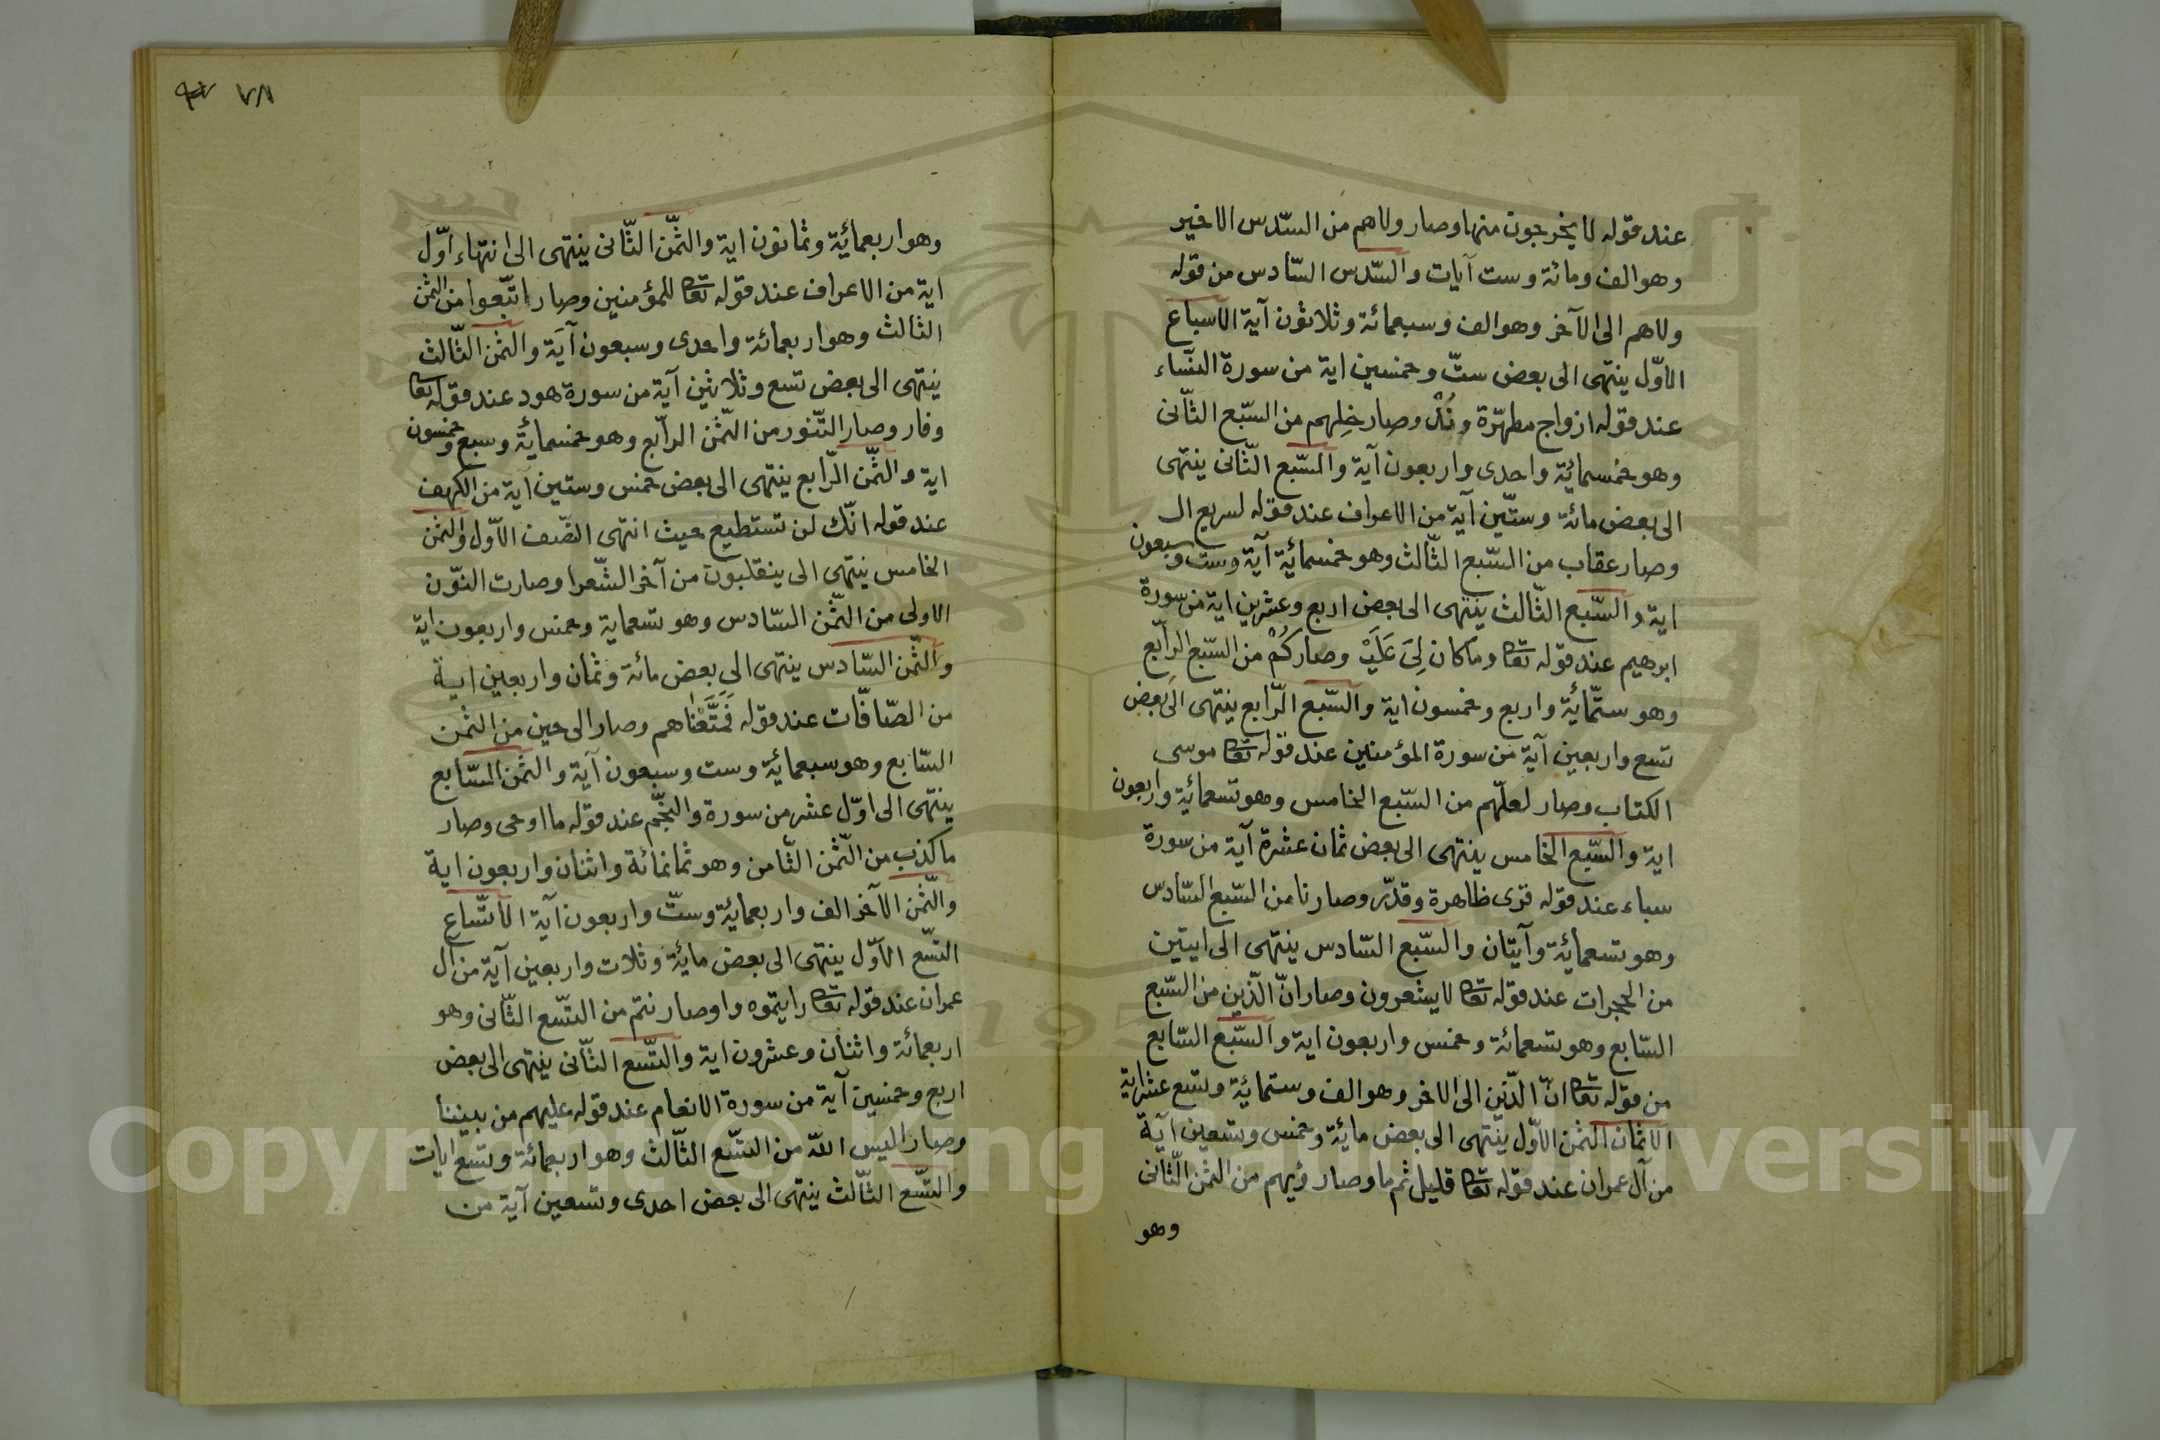 عند قوله لا يخرجون منها وصار ولاهم من السّدس الاخير
وهو الف ومائة وست آيات والسّدس السّادس من قوله
ولاهم الى الآخر وهو الف وسبعمائة وثلاثون آية الأسباع
الاوّل ينتهى الى بعض ستّ وخمسين اية من سورة النّساء
عند قوله ازواج مطهّرة ونُدْ وصار خِلهم من السّبع الثّانى
وهو خمسمائة واحدى واربعون آية والسّبع الثّانى ينتهى
الى بعض مائة وستّين آية من الاعراف عند قوله لسريع الـ
وصار عقاب من السّبع الثّالث وهو خمسمائة آية وست وسبعون
اية والسّبع الثّالث ينتهى الى بعض اربع وعشرين اية من سورة
ابرهيم عند قوله تعا وما كان لِىَ عَلَيْ وصار كُمْ من السّبع الرّابع
وهو ستّمائة واربع وخمسون اية والسّبع الرّابع ينتهى الى بعض
تسع واربعين آية من سورة المؤمنين عند قوله تعا موسى
الكتاب وصار لعلّهم من السّبع الخامس وهو تسعمائة واربعون
اية والسّبع الخامس ينتهى الى بعض ثمان عشرة آية من سورة
سباء عند قوله قرى ظاهرة وقدّر وصار نا من السّبع السّادس
وهو تسعمائة وآيتان والسّبع السّادس ينتهى الى ايتين
من الحجرات عند قوله تعا لا يشعرون وصار انّ الّذين من السّبع
السّابع وهو تسعمائة وخمس واربعون اية والسّبع السّابع
من قوله تعا انّ الّذين الى الاخر وهو الف وستمائة وتسع عشر اية
الاثمان الثمن الاوّل ينتهى الى بعض مائة وخمس وتسعين آية
من آل عمران عند قوله تعا قليل ثم ما وصار ويهم من الثمن الثّانى
وهو
٧٨
وهو اربعمائة وثمانون اية والثمّن الثّانى ينتهى الى انتهاء اوّل
اية من الاعراف عند قوله تعا للمؤمنين وصار اتّبعوا من الثمن
الثالث وهو اربعمائة واحدى وسبعون آية والثمن الثّالث
ينتهى الى بعض تسع وثلاثين آية من سورة هود عند قوله تعا
وفار وصار التّنور من الثّمن الرابع وهو خمسمائة وسبع وخمسون
اية والثّمن الرّابع ينتهى الى بعض خمس وستين آية من الكهف
عند قوله انّك لن تستطيع حيث انتهى النّصف الاوّل والثمن
الخامس ينتهى الى ينقلبون من آخر الشّعرا وصارت النوّن
الاولى من الثّمن السّادس وهو تسعماية وخمس واربعون اية
والثّمن السّادس ينتهى الى بعض مائة وثمان واربعين اية
من الصّافّات عند قوله فَمَتَّعْنَاهم وصار الى حين من الثمن
السّابع وهو سبعمائة وست وسبعون آية والثمن السّابع
ينتهى الى اوّل عشر من سورة والنّجم عند قوله ما اوحى وصار
ما كذب من الثّمن الثّامن وهو ثمانمائة واثنان واربعون اية
والثّمن الآخر الف واربعمائة وستّ واربعون آية الأتساع
التسّع الاوّل ينتهى الى بعض مائة وثلاث واربعين آية من آل
عمران عند قوله تعا رايتموه وا وصار نتم من التسّع الثّانى وهو
اربعمائة واثنان وعشرون اية والتسّع الثّانى ينتهى الى بعض
اربع وخمسين آية من سورة الانعام عند قوله عليهم من بيننا
وصار اليس اللّه من التسّع الثّالث وهو اربعمائة وتسع ايات
والتسّع الثّالث ينتهى الى بعض احدى وتسعين آية من
Copyright © King Saud University